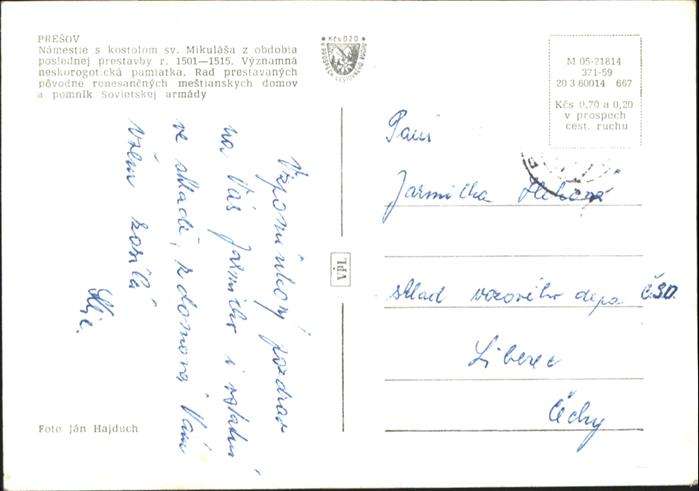 PREŠOV
Námestie s kostolom sv. Mikuláša z obdobia
poslednej prestavby r. 1501—1515. Významná
neskorogotická pamiatka. Rad prestavaných
pôvodne renesančných meštianskych domov
a pomník Sovietskej armády
M 05-21814
371-59
20 3 60014 667
Kčs 0,70 a 0,20
v prospech
cest. ruchu
Vzpomínkový pozdrav
na Vás Jarmilko i ostatní
ve skladě, z domova Vám
všem posílá
Paní
Jarmilka
sklad vozového depa ČSD.
Liberec
Čechy
VpL
Foto Ján Hajduch